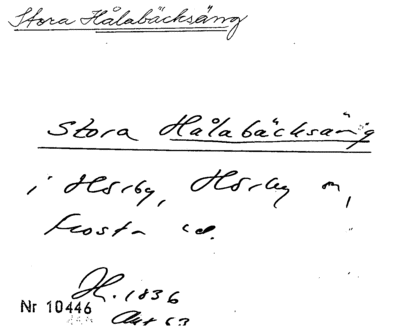 Stora Hålabäcksäng
Stora Hålabäcksäng
i Hörby, Hörby
Frosta
H. 1836
Nr 10446
Akt 63